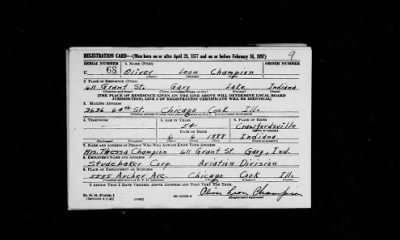 9
REGISTRATION CARD—(Men born on or after April 28, 1877 and on or before February 16, 1897)
SERIAL NUMBER 1. NAME (Print) ORDER NUMBER
U 68 Oliver Leon Champion
2. PLACE OF RESIDENCE (Print)
611 Grant St. Gary Lake Indiana
[THE PLACE OF RESIDENCE GIVEN ON THE LINE ABOVE WILL DETERMINE LOCAL BOARD
JURISDICTION; LINE 2 OF REGISTRATION CERTIFICATE WILL BE IDENTICAL]
3. MAILING ADDRESS
3636 64th St. Chicago Cook Ill.
4. TELEPHONE
54 Crawfordsville
6 6 1888 Indiana
7. NAME AND ADDRESS OF PERSON WHO WILL ALWAYS KNOW YOUR ADDRESS
Mrs. Theresa Champion 611 Grant St. Gary, Ind.
8. EMPLOYER'S NAME AND ADDRESS
Studebaker Corp. Aviation Division
9. PLACE OF EMPLOYMENT OR BUSINESS
Archer Ave. Chicago Cook Ill.
I AFFIRM THAT I HAVE VERIFIED ABOVE ANSWERS AND THAT THEY ARE TRUE.
D. S. S. Form 1
Oliver Leon Champion